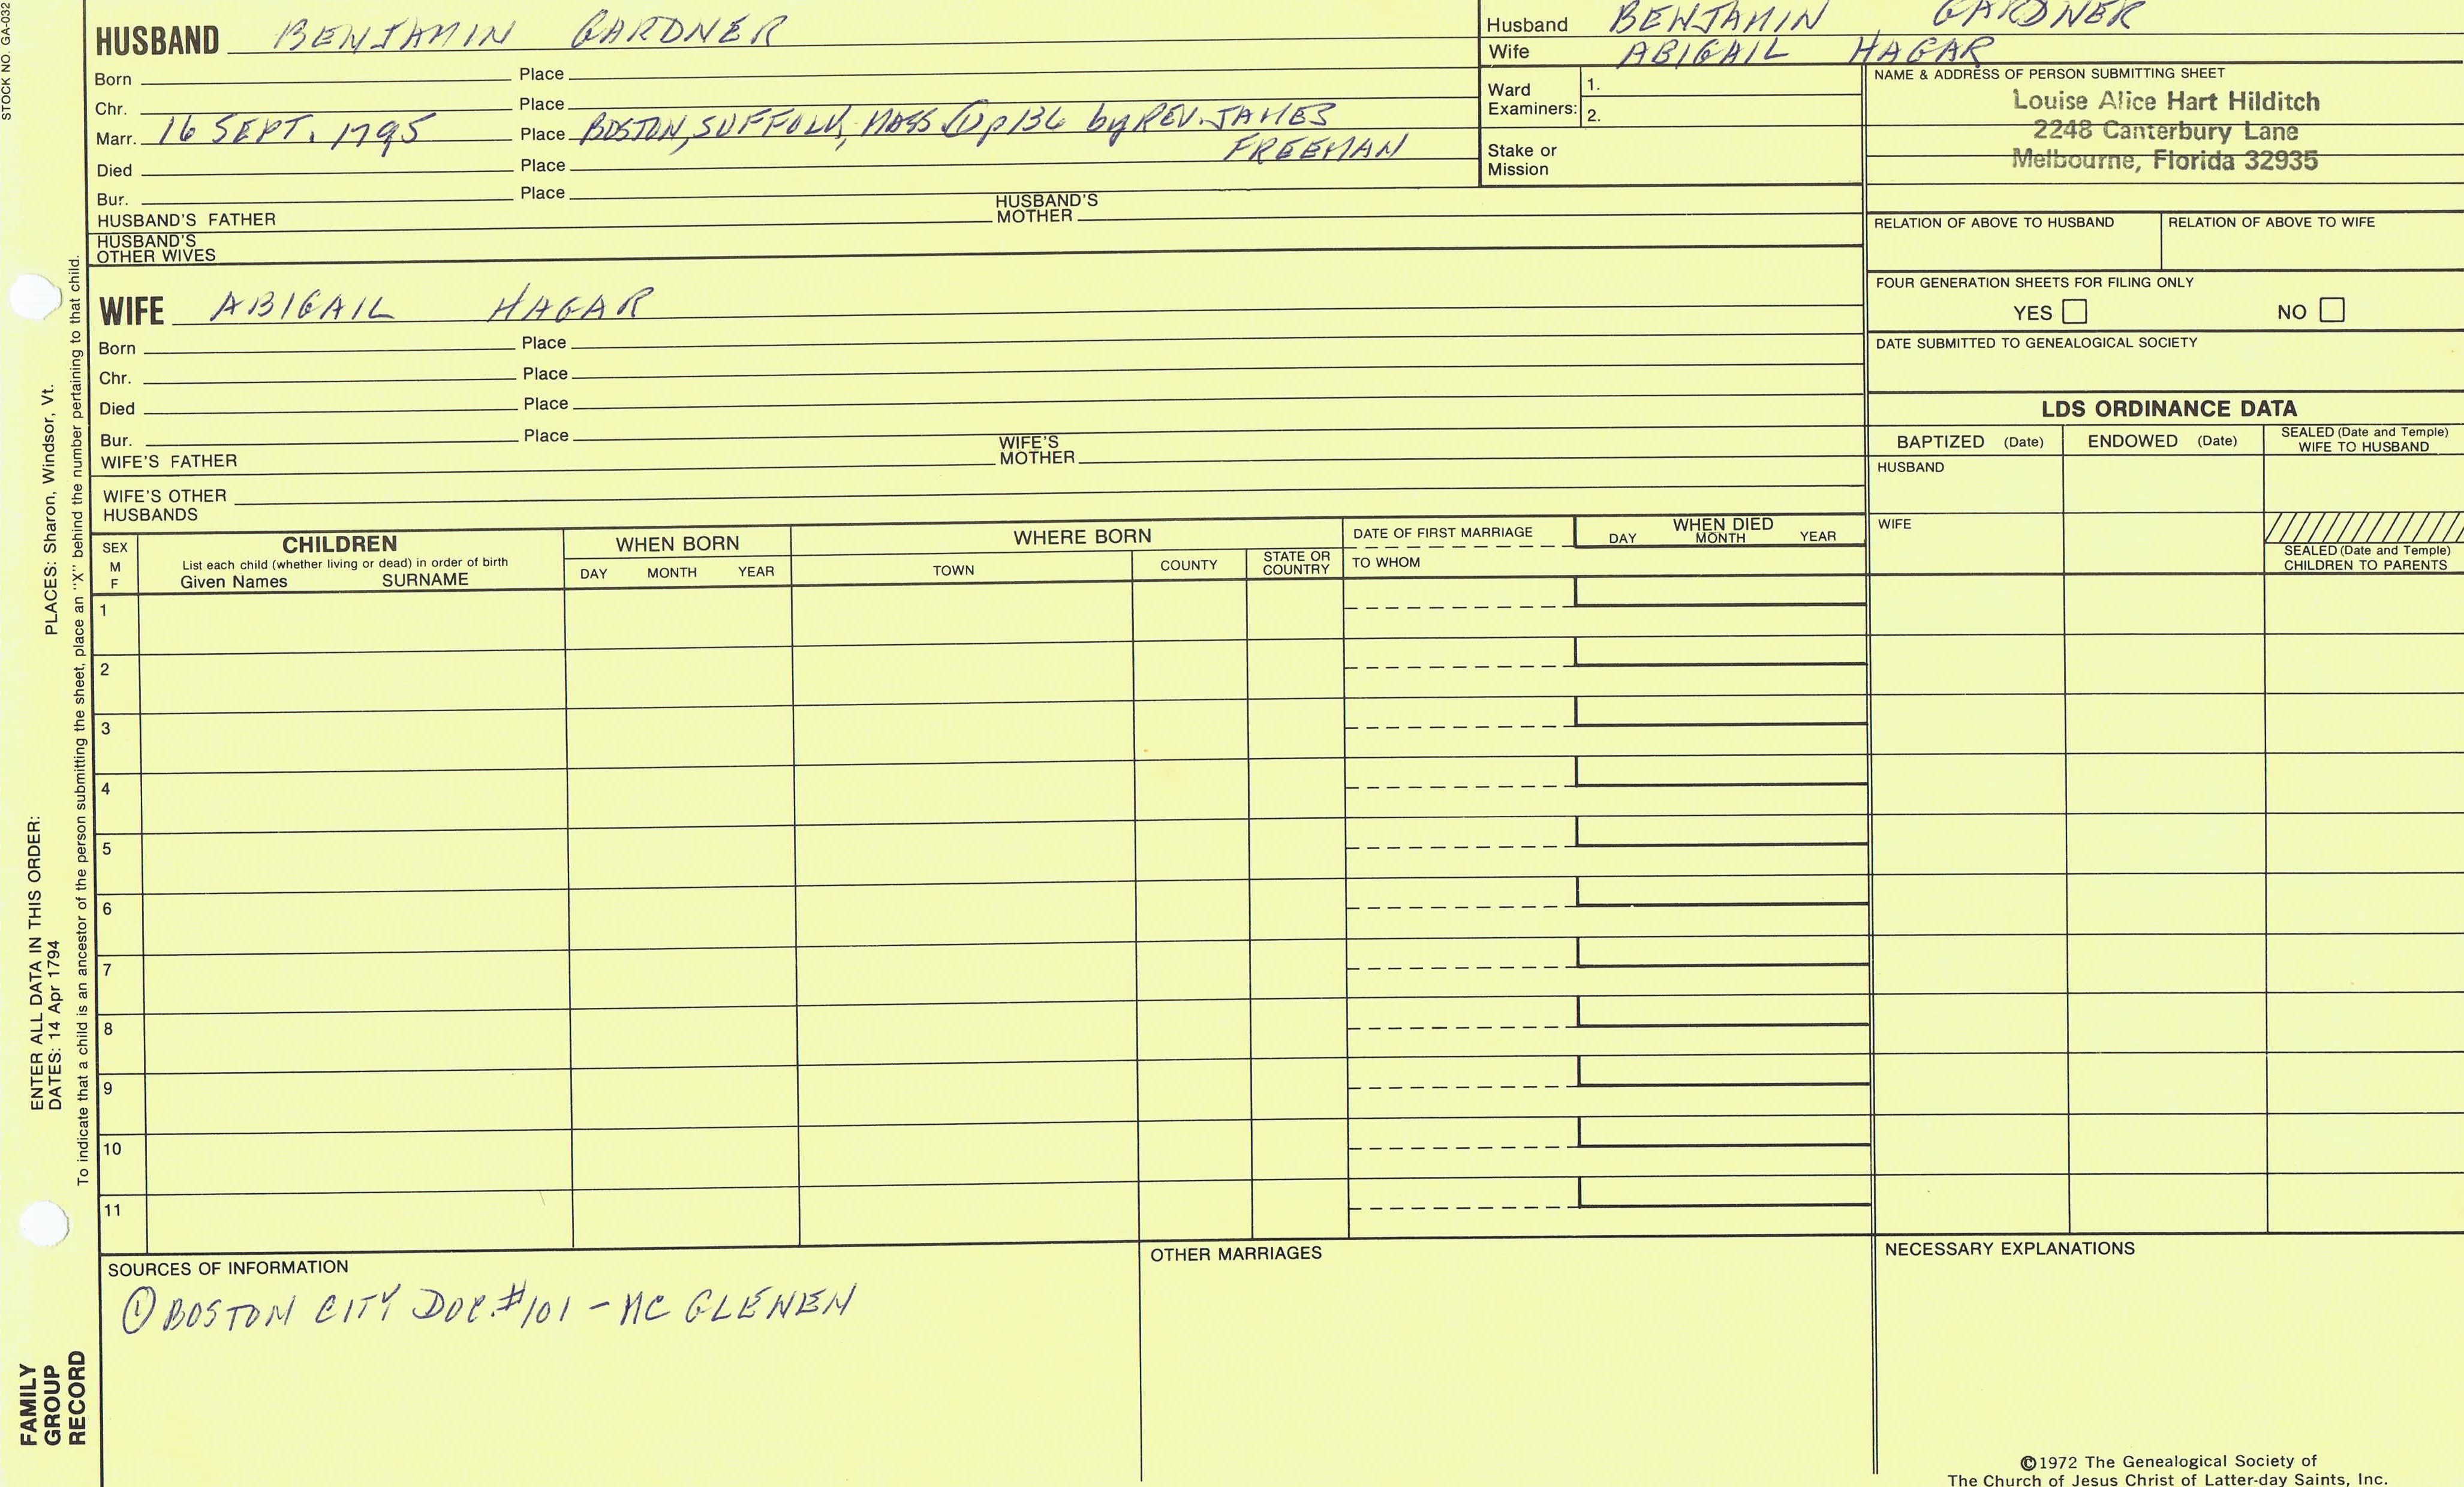 STOCK NO. GA-032
HUSBAND BENJAMIN GARDNER
Born Place
Chr. Place
Marr. 16 SEPT. 1795 Place BOSTON, SUFFOLK, MASS ① p136 by REV. JAMES
FREEMAN
Died Place
Bur. Place
HUSBAND'S FATHER HUSBAND'S MOTHER
HUSBAND'S
OTHER WIVES
Husband BENJAMIN GARDNER
Wife ABIGAIL HAGAR
Ward
Examiners:
1.
2.
Stake or
Mission
NAME & ADDRESS OF PERSON SUBMITTING SHEET
Louise Alice Hart Hilditch
2248 Canterbury Lane
Melbourne, Florida 32935
RELATION OF ABOVE TO HUSBAND RELATION OF ABOVE TO WIFE
FOUR GENERATION SHEETS FOR FILING ONLY
YES NO
DATE SUBMITTED TO GENEALOGICAL SOCIETY
WIFE ABIGAIL HAGAR
Born Place
Chr. Place
Died Place
Bur. Place
WIFE'S FATHER WIFE'S MOTHER
WIFE'S OTHER
HUSBANDS
LDS ORDINANCE DATA
BAPTIZED (Date) ENDOWED (Date) SEALED (Date and Temple)
WIFE TO HUSBAND
HUSBAND
WIFE
SEALED (Date and Temple)
CHILDREN TO PARENTS
SEX
M
F
CHILDREN
List each child (whether living or dead) in order of birth
Given Names SURNAME
WHEN BORN
DAY MONTH YEAR
WHERE BORN
TOWN COUNTY STATE OR
COUNTRY
DATE OF FIRST MARRIAGE
TO WHOM
WHEN DIED
DAY MONTH YEAR
1
2
3
4
5
6
7
8
9
10
11
SOURCES OF INFORMATION
① BOSTON CITY DOC. #101 - MC GLENEN
OTHER MARRIAGES
NECESSARY EXPLANATIONS
©1972 The Genealogical Society of
The Church of Jesus Christ of Latter-day Saints, Inc.
FAMILY
GROUP
RECORD
ENTER ALL DATA IN THIS ORDER:
DATES: 14 Apr 1794 PLACES: Sharon, Windsor, Vt.
To indicate that a child is an ancestor of the person submitting the sheet, place an "X" behind the number pertaining to that child.